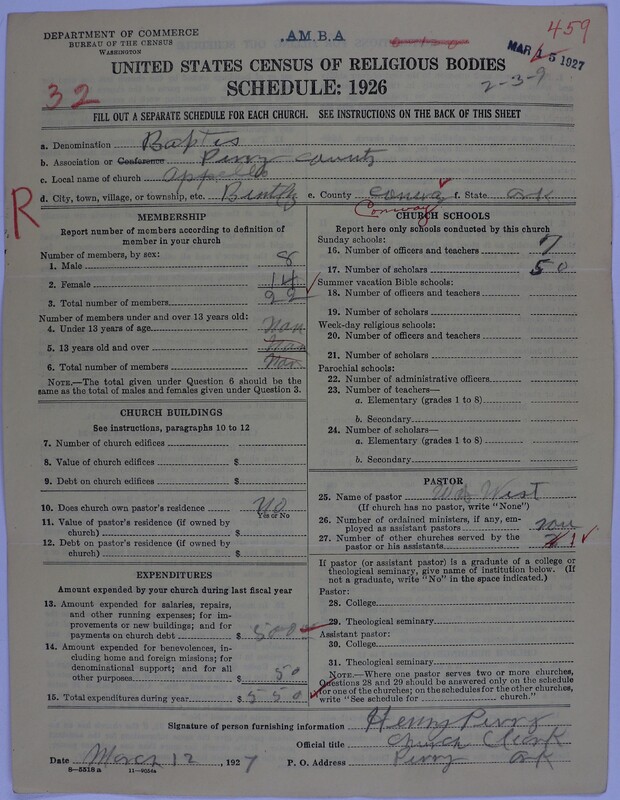 DEPARTMENT OF COMMERCE
BUREAU OF THE CENSUS
WASHINGTON
.A.M.B.A
459
MAR 15 1927
2-3-9
UNITED STATES CENSUS OF RELIGIOUS BODIES
SCHEDULE: 1926
32
FILL OUT A SEPARATE SCHEDULE FOR EACH CHURCH. SEE INSTRUCTIONS ON THE BACK OF THIS SHEET
a. Denomination Baptis
b. Association or Conference Perry County
c. Local name of church Appello
d. City, town, village, or township, etc. e. County Conway f. State ark
R
MEMBERSHIP
Report number of members according to definition of member in your church
Number of members, by sex:
1. Male 8
2. Female 14
3. Total number of members 22
Number of members under and over 13 years old:
4. Under 13 years of age Non
5. 13 years old and over Non
6. Total number of members Non
NOTE.—The total given under Question 6 should be the same as the total of males and females given under Question 3.
CHURCH BUILDINGS
See instructions, paragraphs 10 to 12
7. Number of church edifices
8. Value of church edifices $
9. Debt on church edifices $
10. Does church own pastor's residence no
Yes or No
11. Value of pastor's residence (if owned by church) $
12. Debt on pastor's residence (if owned by church) $
EXPENDITURES
Amount expended by your church during last fiscal year
13. Amount expended for salaries, repairs, and other running expenses; for improvements or new buildings; and for payments on church debt $ 500
14. Amount expended for benevolences, including home and foreign missions; for denominational support; and for all other purposes $ 50
15. Total expenditures during year $ 550
Conway
CHURCH SCHOOLS
Report here only schools conducted by this church
Sunday schools:
16. Number of officers and teachers 7
17. Number of scholars 50
Summer vacation Bible schools:
18. Number of officers and teachers
19. Number of scholars
Week-day religious schools:
20. Number of officers and teachers
21. Number of scholars
Parochial schools:
22. Number of administrative officers
23. Number of teachers—
a. Elementary (grades 1 to 8)
b. Secondary
24. Number of scholars—
a. Elementary (grades 1 to 8)
b. Secondary
PASTOR
25. Name of pastor West
(If church has no pastor, write "None")
26. Number of ordained ministers, if any, employed as assistant pastors non
27. Number of other churches served by the pastor or his assistants 1
If pastor (or assistant pastor) is a graduate of a college or theological seminary, give name of institution below. (If not a graduate, write "No" in the space indicated.)
Pastor:
28. College
29. Theological seminary
Assistant pastor:
30. College
31. Theological seminary
NOTE.—Where one pastor serves two or more churches, Questions 28 and 29 should be answered only on the schedule for one of the churches; on the schedules for the other churches, write "See schedule for church."
Signature of person furnishing information Henry Perry
Official title Church Clerk
Date March 12, 1927 P. O. Address Perry Ark
8—5518 a 11—9054a